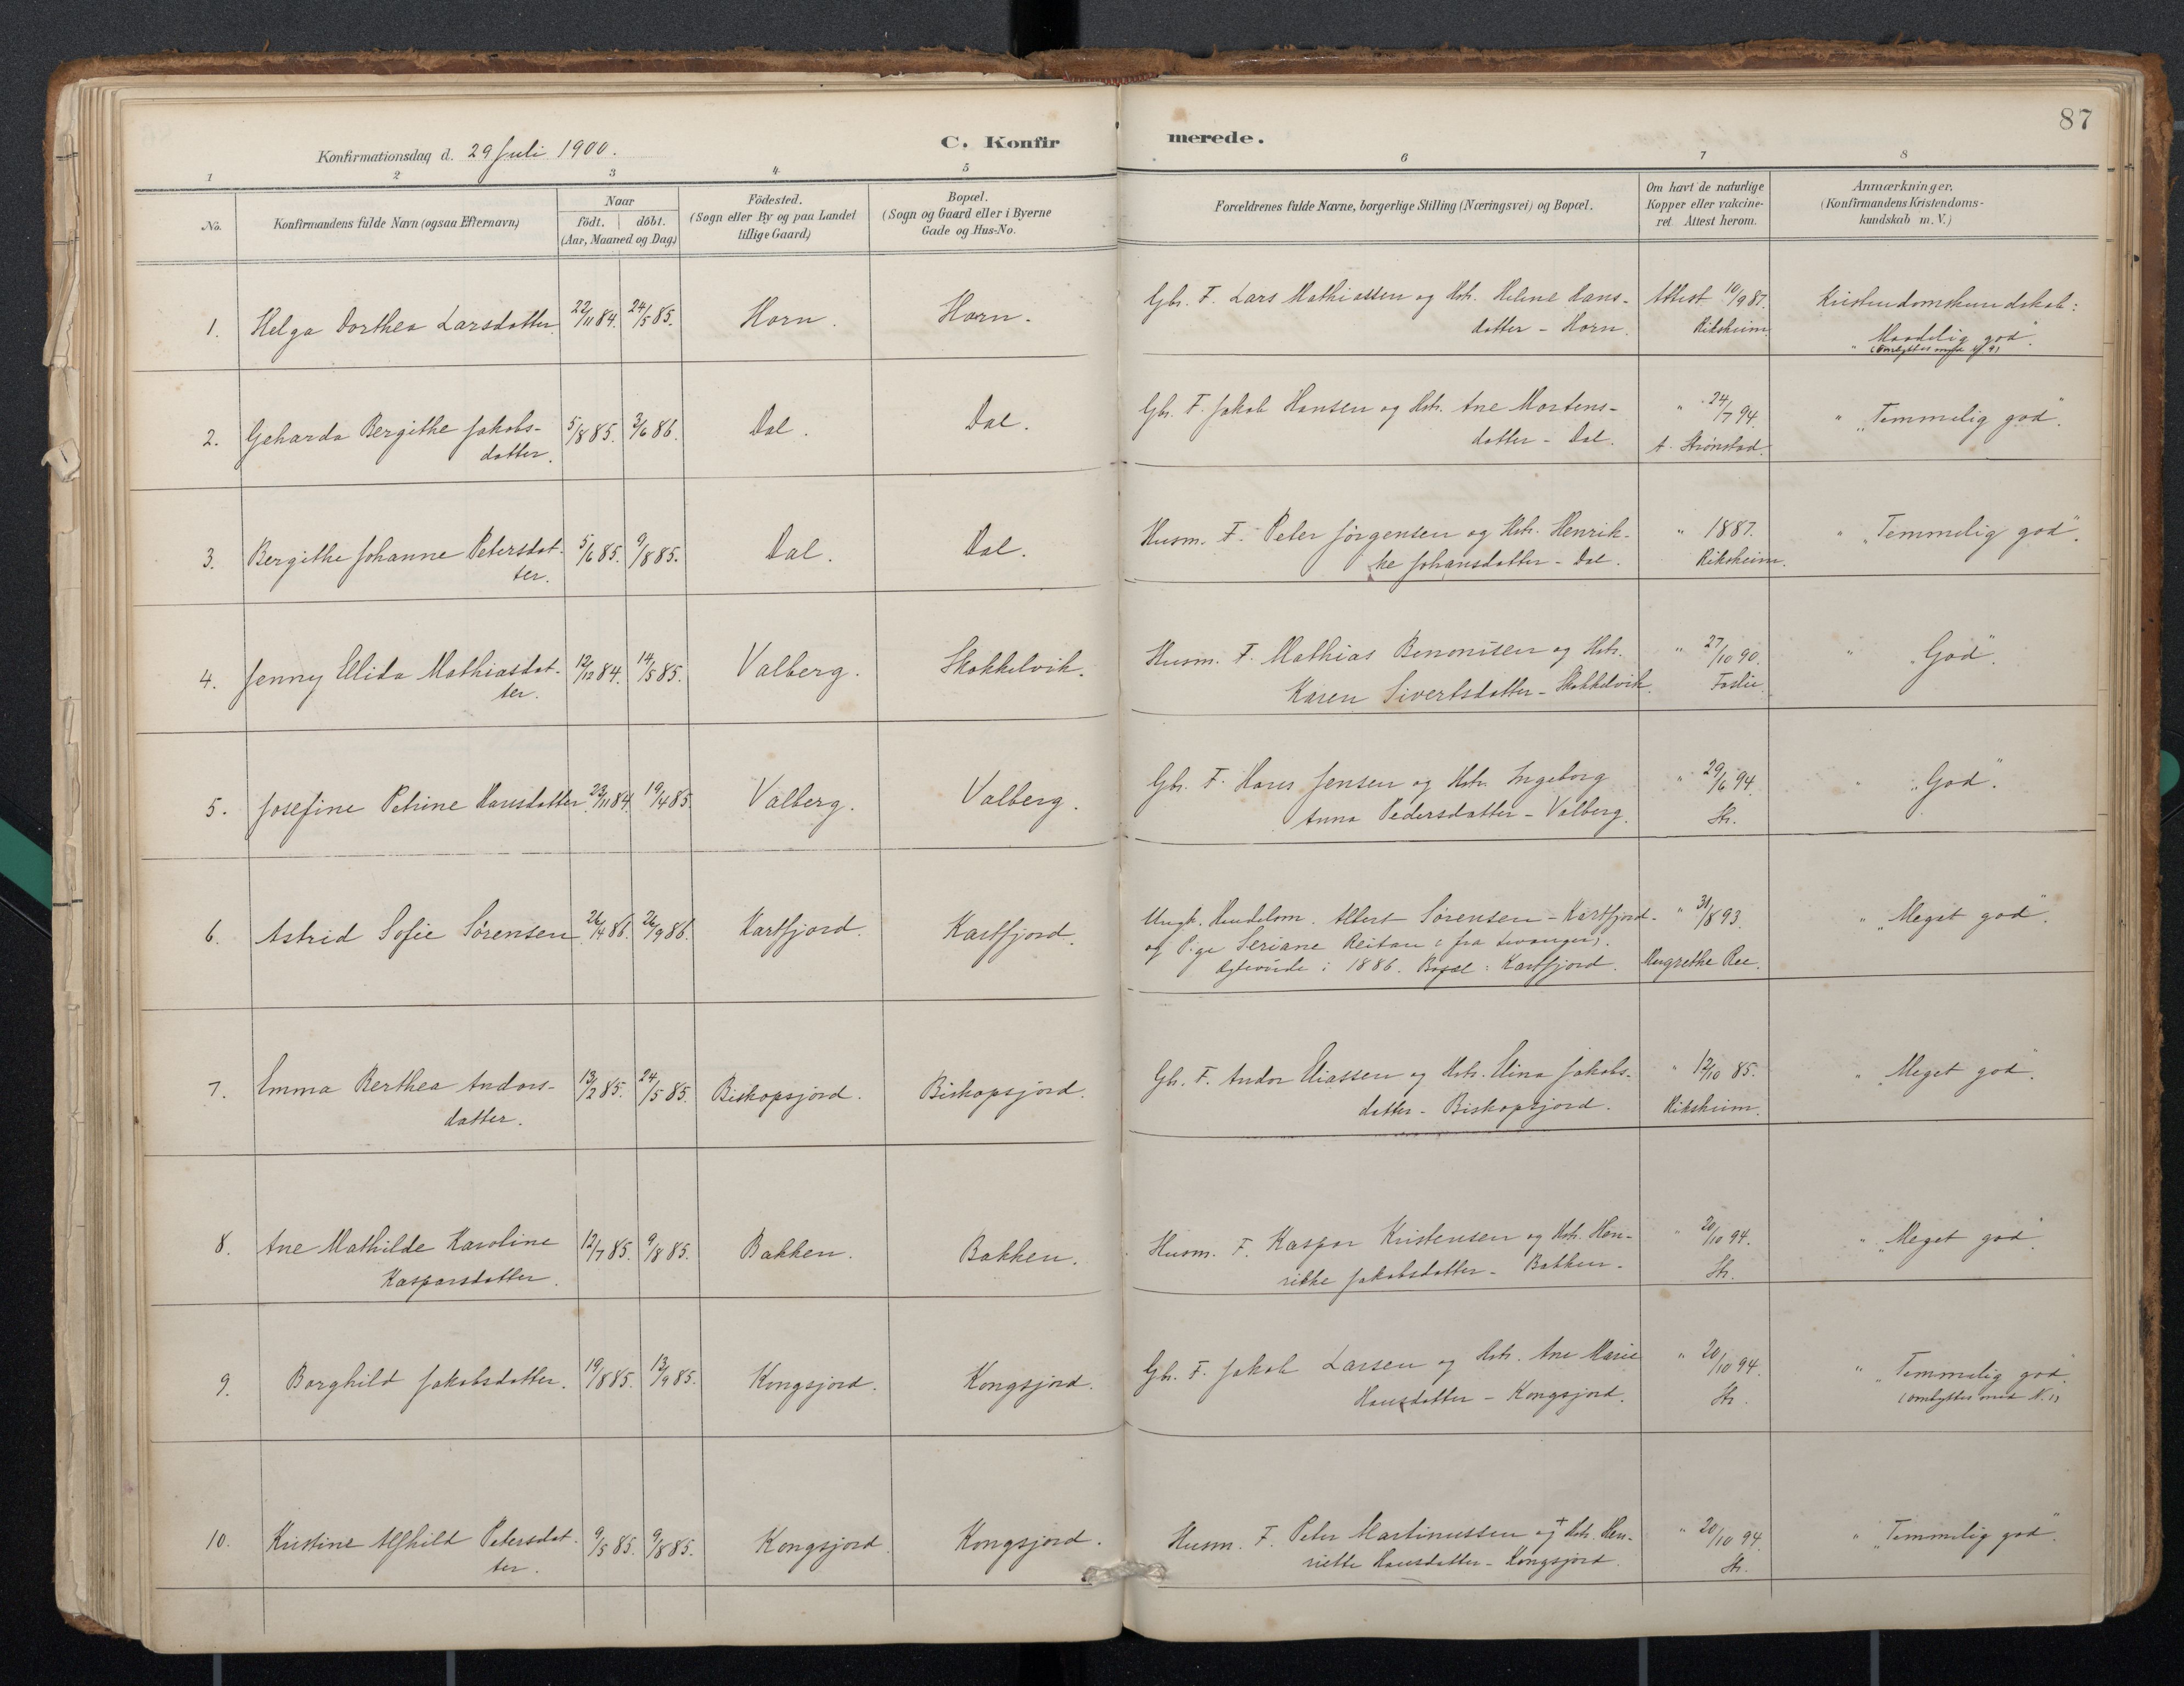 87
Konfirmationsdag d. 29 Juli 1900.
C. Konfirmerede.
1 2 3 4 5 6 7 8
No.
Konfirmandens fulde Navn (ogsaa Efternavn)
Naar
födt. döbt.
(Aar, Maaned og Dag.)
Födested.
(Sogn eller By og paa Landet
tillige Gaard)
Bopæl.
(Sogn og Gaard eller i Byerne
Gade og Hus-No.
Forældrenes fulde Navne, borgerlige Stilling (Næringsvei) og Bopæl.
Om havt de naturlige
Kopper eller vakcine-
ret. Attest herom.
Anmærkninger.
(Konfirmandens Kristendoms-
kundskab m. V.)
1. Helga Dorthea Larsdatter 22/11 84. 24/5 85. Horn. Horn. Gbr. F. Lars Mathiassen og Hstr. Helene Hans- Attest 10/9 87. Kristendomskundskab:
datter - Horn. Riksheim "Maadelig god".
(Ombyttes med N. 9)
2. Geharda Bergithe Jakobs- 5/8 85. 3/6 86. Dal. Dal. Gbr. F. Jakob Hansen og Hstr. Ane Mortens- " 24/7 94. " "Temmelig god".
datter. datter - Dal. A. Strønstad.
3. Bergithe Johanne Petersdat- 5/6 85. 9/8 85. Dal. Dal. Husm. F. Peter Jørgensen og Hstr. Henrik- " 1887. " "Temmelig god".
ter. ke Johansdatter - Dal. Riksheim.
4. Jenny Elida Mathiasdat- 12/12 84. 14/5 85. Valberg. Skokkelvik. Husm. F. Mathias Benonisen og Hstr. " 27/10 90. " "God".
ter. Karen Sivertsdatter - Skokkelvik. Foslie.
5. Josefine Petrine Hansdatter 23/11 84. 19/4 85. Valberg. Valberg. Gbr. F. Hans Jensen og Hstr. Ingeborg " 29/6 94. " "God".
Anna Pedersdatter - Valberg. Str.
6. Astrid Sofie Sørensen 26/4 86. 26/9 86. Kartfjord. Kartfjord. Ungk. Handelsm. Albert Sørensen - Kartfjord - " 31/8 93. " "Meget god".
og Pige Seriane Reitan (fra Levanger).
Egteviede i 1886. Bopæl: Kartfjord. Margrethe Ree.
7. Emma Berthea Andors- 13/2 85. 24/5 85. Biskopsjord. Biskopsjord. Gbr. F. Andor Eliassen og Hstr. Elina Jakobs- " 12/10 85. " "Meget god".
datter. datter - Biskopsjord. Riksheim.
8. Ane Mathilde Karoline 12/7 85. 9/8 85. Bakken. Bakken. Husm. F. Kaspar Kristensen og Hstr. Hen- " 20/10 94. " "Meget god".
Kasparsdatter. rikke Jakobsdatter - Bakken. Str.
9. Borghild Jakobsdatter. 19/8 85. 13/9 85. Kongsjord. Kongsjord. Gbr. F. Jakob Larsen og Hstr. Ane Marie " 20/10 94. " "Temmelig god".
Hansdatter - Kongsjord. Str. (Ombyttes med N. 1)
10. Kristine Alfhild Petersdat- 9/5 85. 9/8 85. Kongsjord. Kongsjord. Husm. F. Peter Martinussen og + Hstr. Hen- " 20/10 94. " "Temmelig god".
ter. riette Hansdatter - Kongsjord. Str.